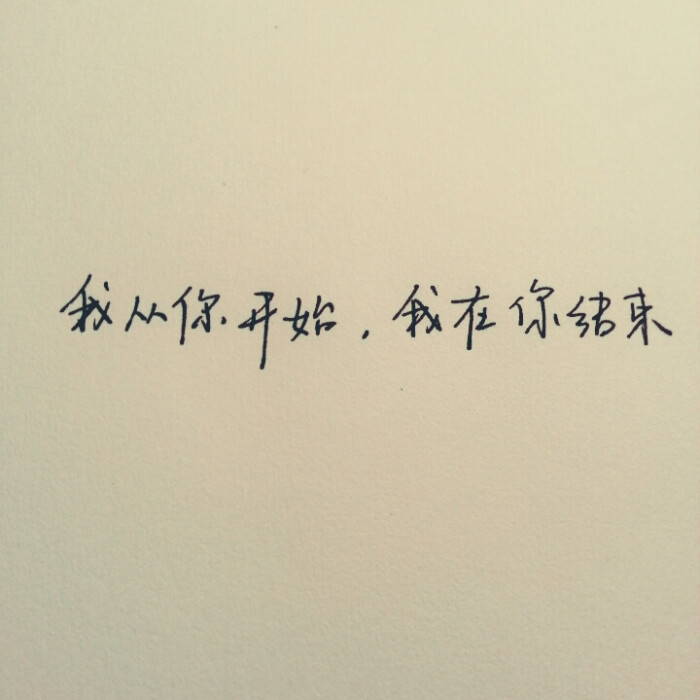 我从你开始，我在你结束